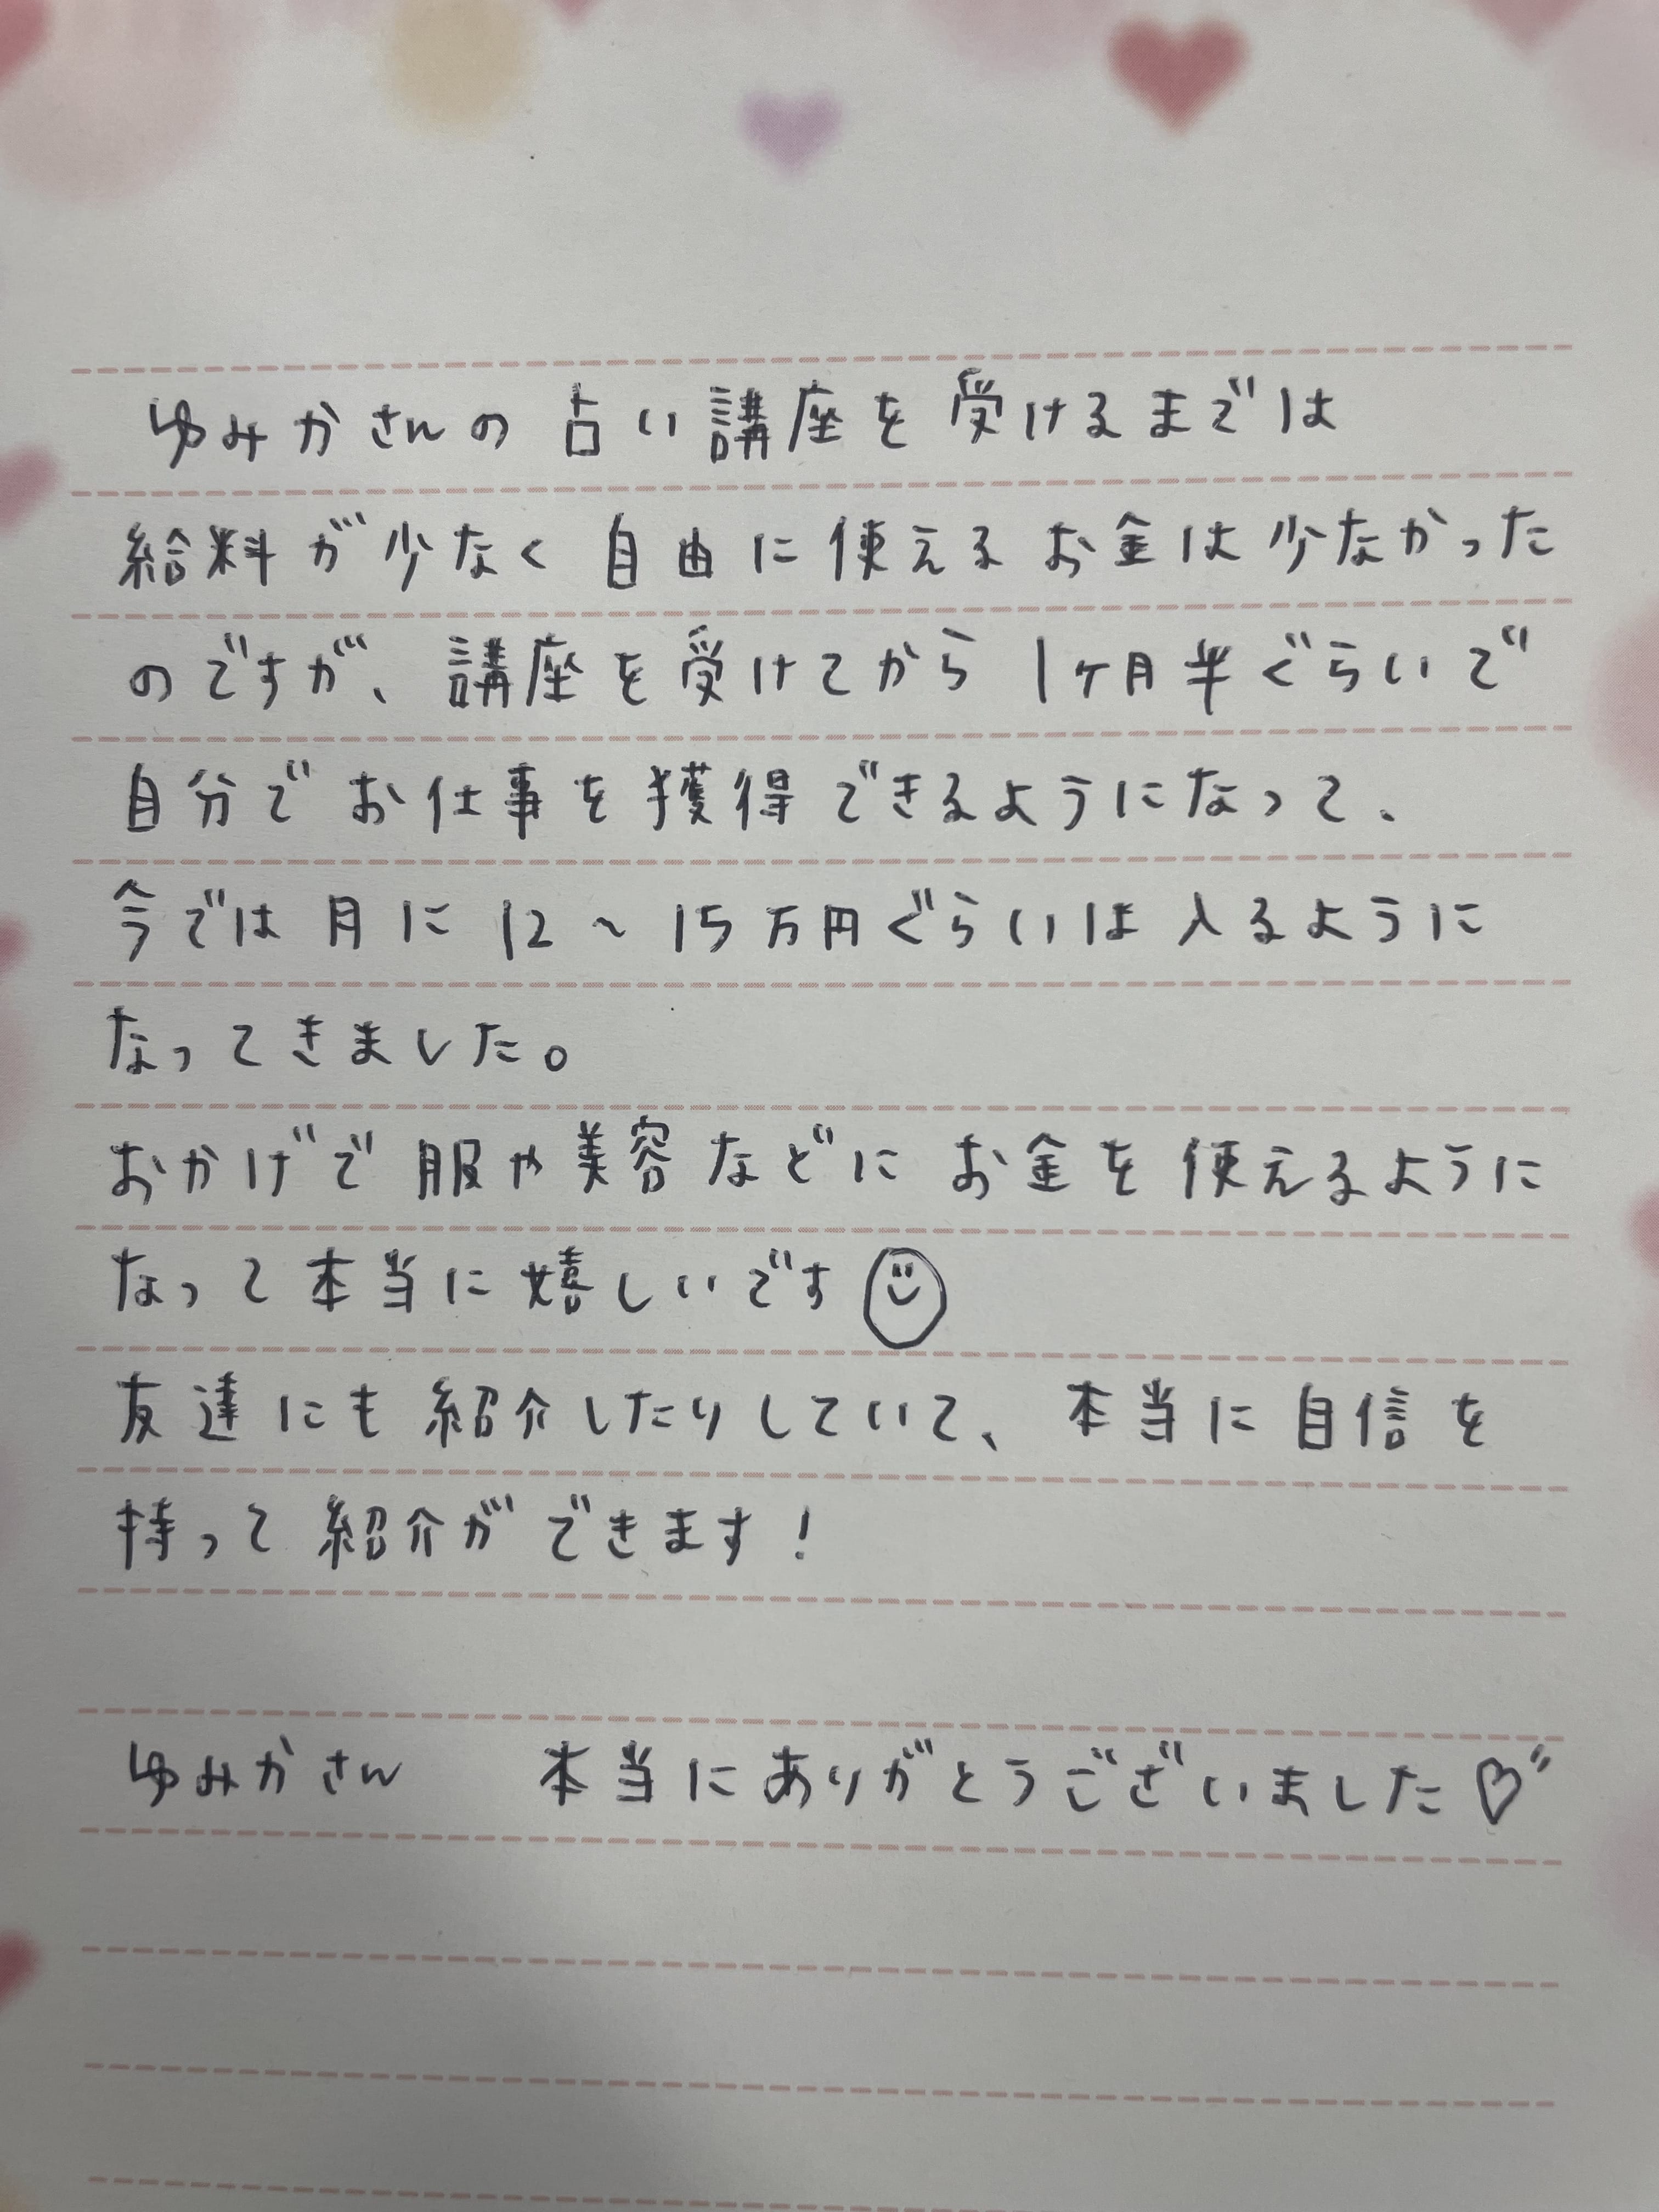 ゆみかさんの占い講座を受けるまでは
給料が少なく自由に使えるお金は少なかった
のですが、講座を受けてから1ヶ月半ぐらいで
自分でお仕事を獲得できるようになって、
今では月に12~15万円ぐらいは入るように
なってきました。
おかげで服や美容などにお金を使えるように
なって本当に嬉しいです
友達にも紹介したりしていて、本当に自信を
持って紹介ができます!
ゆみかさん 本当にありがとうございました♡